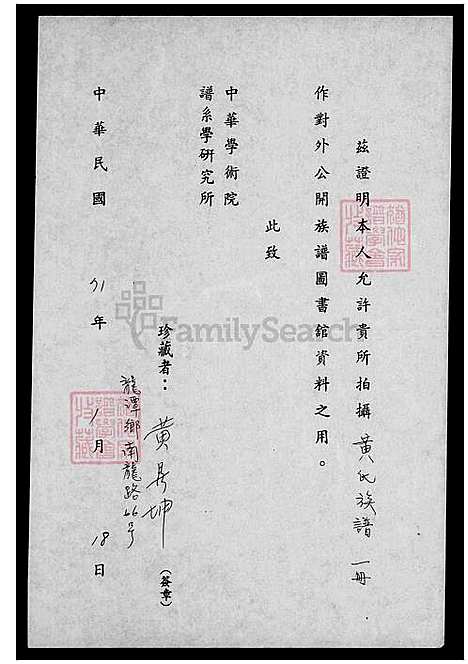 茲證明本人允許貴所拍攝黃氏族譜一冊
作對外公開族譜圖書舘資料之用。
此致
中華學術院
譜系學硏究所
珍藏者：黃昇坤（簽章）
龍潭鄉南龍路66号
中華民國71年1月18日
FamilySearch